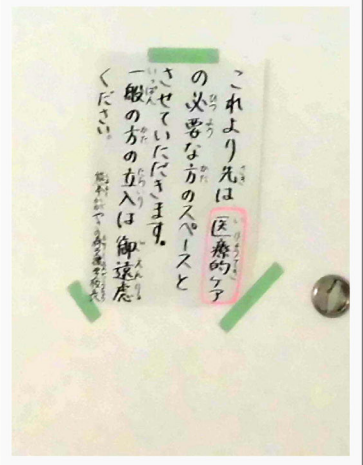 これより先は医療的ケア
の必要な方のスペースと
させていただきます。
一般の方の立入は御遠慮
ください。